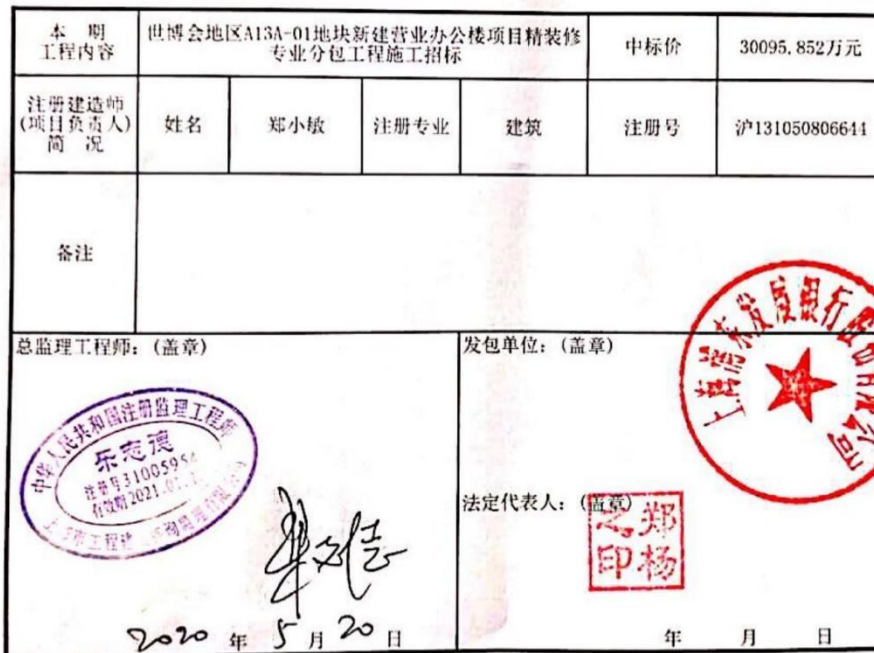 本 期
工程内容
世博会地区A13A-01地块新建营业办公楼项目精装修
专业分包工程施工招标
中标价
30095.852万元
注册建造师
(项目负责人)
简 况
姓名
郑小敏
注册专业
建筑
注册号
沪131050806644
备注
总监理工程师：(盖章)
中华人民共和国注册监理工程师
乐志德
注册号31005954
有效期2021.
2020 年 5 月 20 日
发包单位：(盖章)
上海浦东发展银行股份有限公司
法定代表人：(盖章)
郑杨
之印
年 月 日